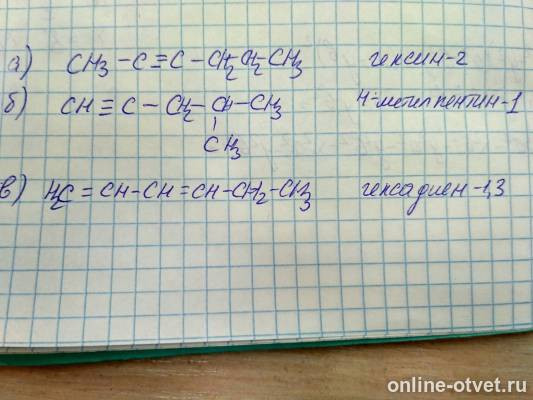 а) CH3 – C ≡ C – CH2 CH2 CH3 гексин-2
б) CH ≡ C – CH2 – CH – CH3 4-метилпентин-1
CH3
в) H2C = CH – CH = CH – CH2 – CH3 гексадиен-1,3
online-otvet.ru